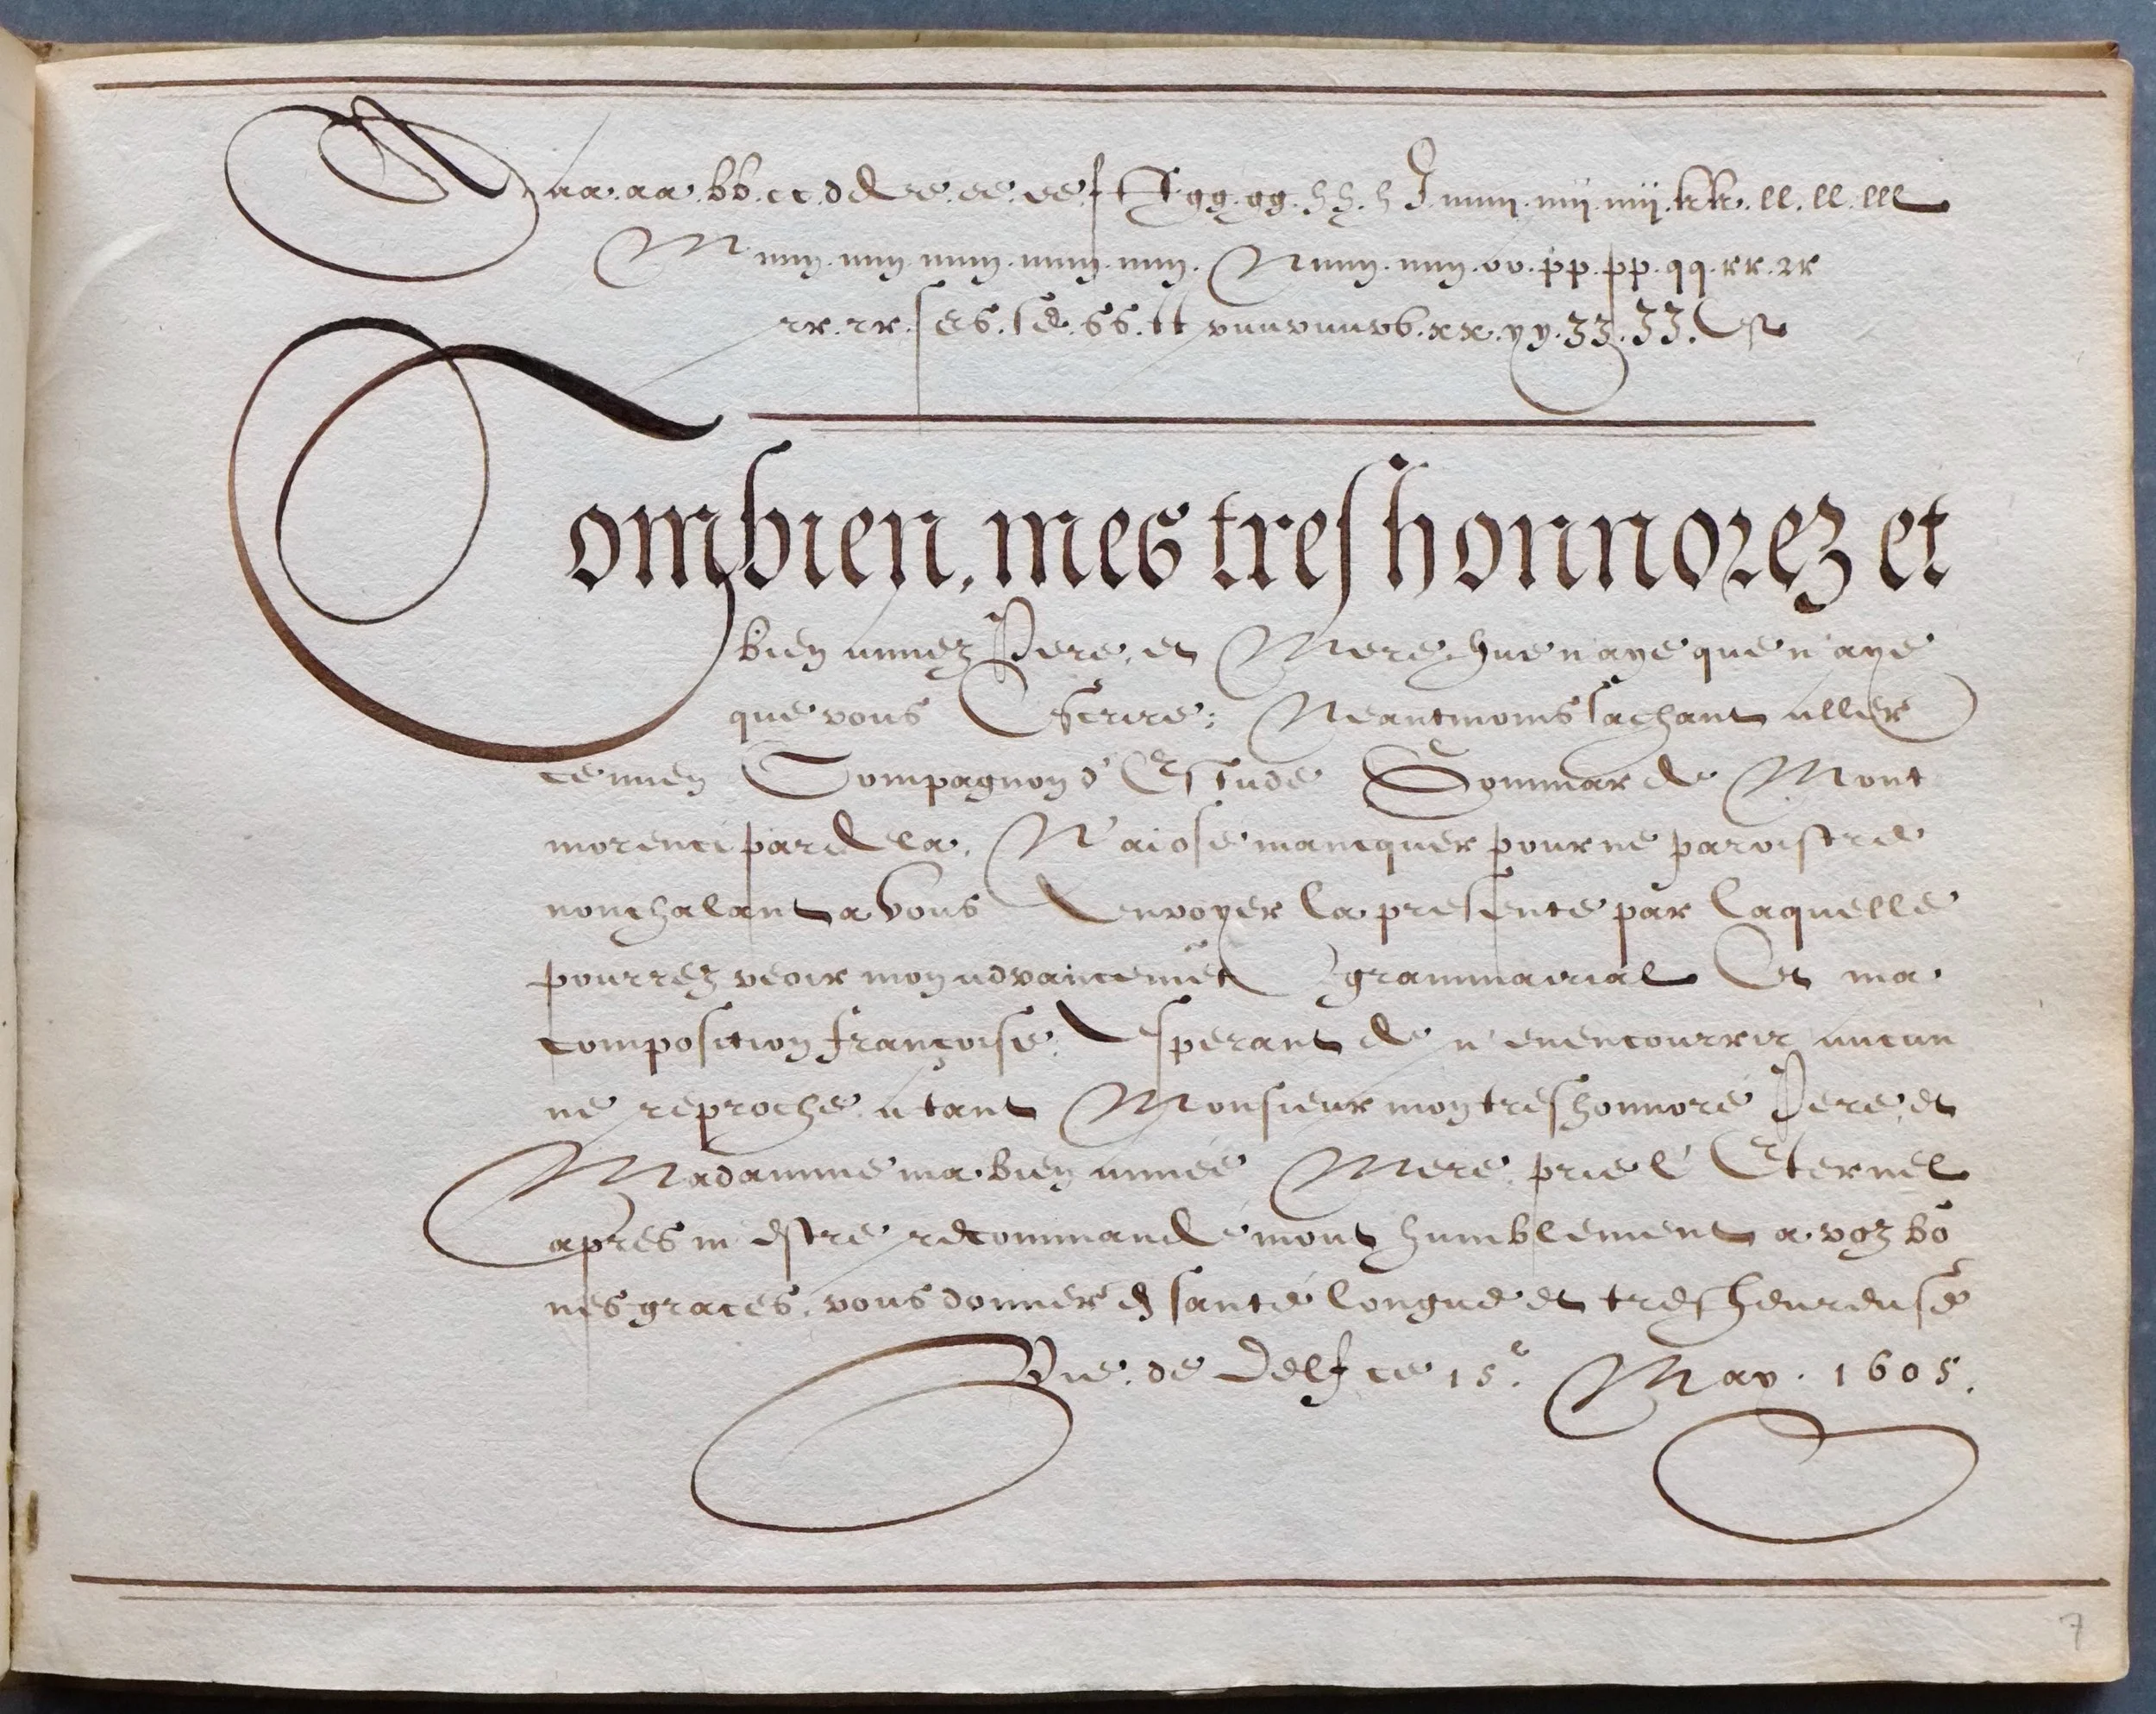 Aaa.aa.bb.cc.dde.e.ee.ee.f ff.gg.gg.hh.h J.iiiiij.iiij.iiij.kk.ll.ll.lll
Mmm.mm.mmm.mmm.mm. Nnnn.nnn.oo.pp.pp.qq.rr.rr
rr.rr.ses.se.ss.tt vuuvuuvb.xx.yy.zz.zz.&
Combien, mes tres honnorez et
bien aimez Pere, et Mere, que n'aye que n'aye
que vous Escrire; Neantmoins sachant aller
ce mien Compagnon d'Estude Gommar de Mont
morenci par dela, N'ai osé mancquer pour ne paroistre
nonchalant a vous Envoyer la presente par laquelle
pourrez veoir mon advancemēt grammairial Et ma
composition françoise, Esperant de n'en encourrir aucun
ne reproche, a tant Monsieur mon tres honnoré Pere, et
Madamme ma bien aimée Mere, prie l'Eternel
apres m'estre recommandé mout humblement a voz bō
nes graces, vous donner ē santé longue et tres heureuse
Vie, de Delf ce 15.e May. 1605.
7